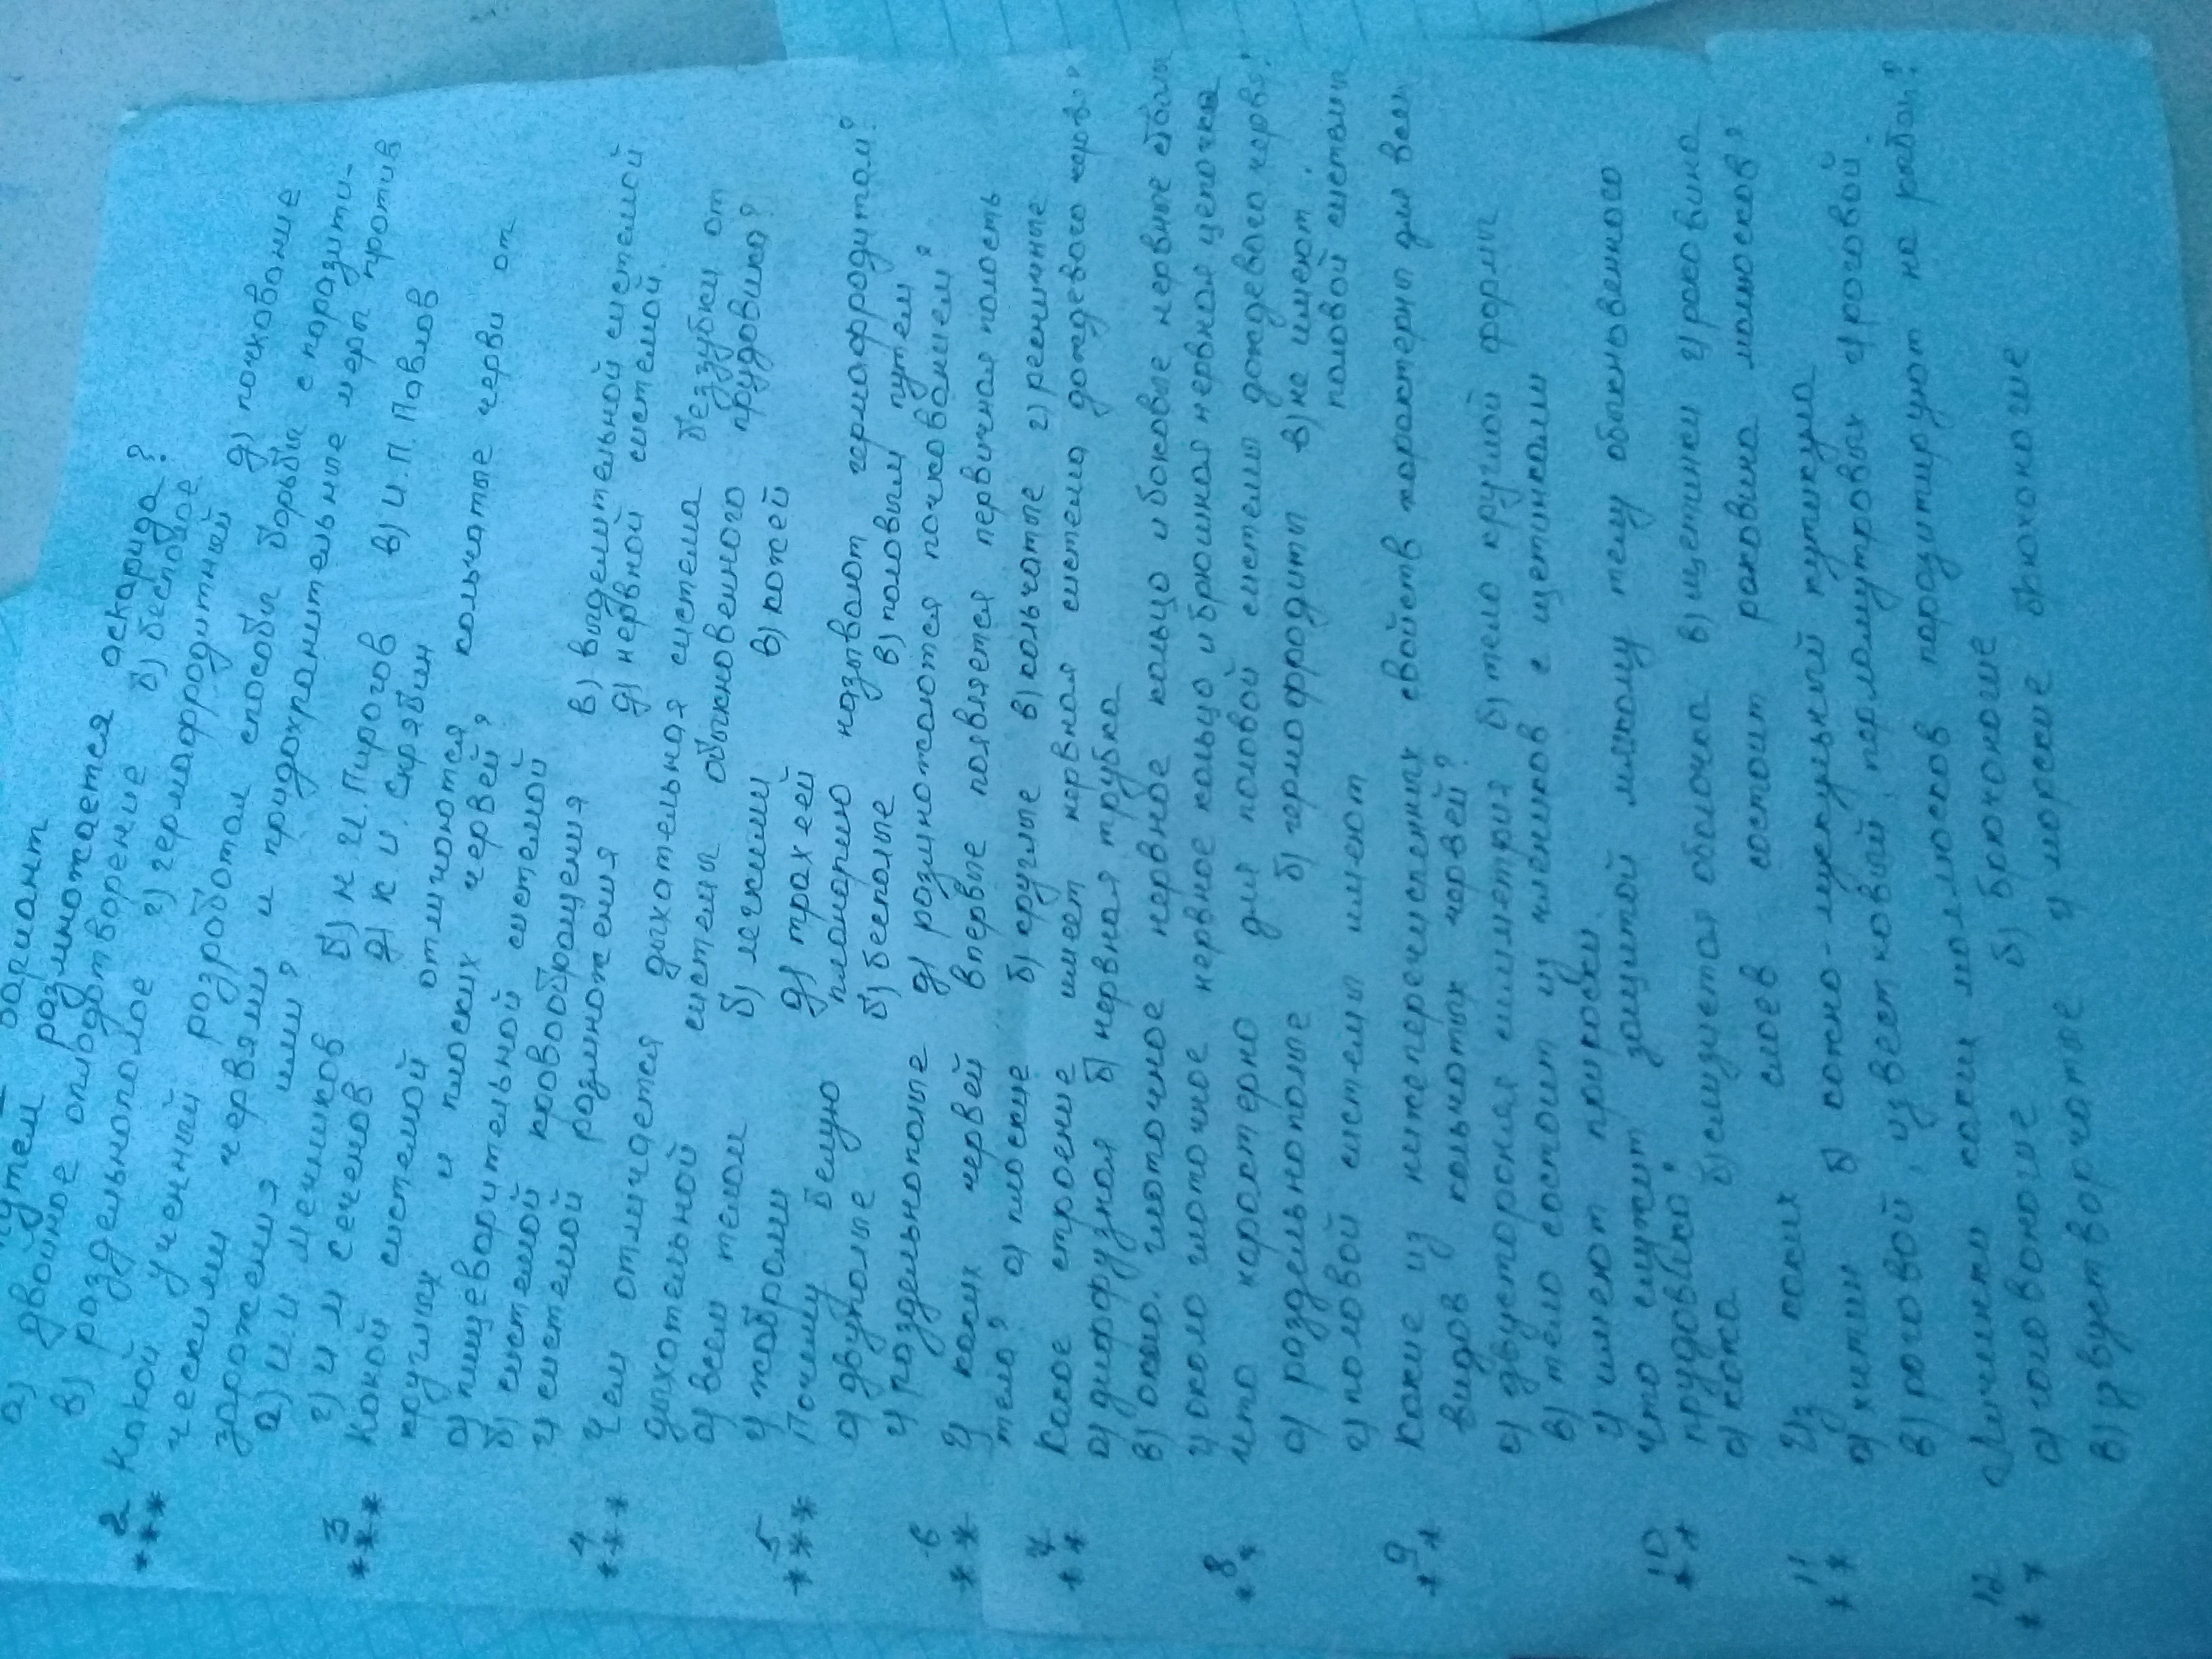 вариант
путем размножается аскарида?
а) двойное оплодотворение б) бесполое
в) раздельнополое г) гермафродитный д) почкование
2 Какой ученный розработал способы борьбы с паразити-
*** ческими червями и придохранительные меры против
заражения ими?
а) И.И. Мечников б) Н.И. Пирогов в) И.П. Павлов
г) И М Сеченов д) К.И. Скрябин
3 Какой системой отличаются кольчатые черви от
*** круглых и плоских червей?
а) пищеварительной системой
б) системой кровообращения в) выделительной системой
г) системой размножения д) нервной системой.
4 Чем отличается дыхательная система беззубки от
*** дыхательной системы обыкновенного прудовика?
а) всем телом б) легкими в) кожей
г) жабрами д) трахеей
5 Почему белую планарию называют гермафродитом?
*** а) двуполые б) бесполые в) половым путем
г) раздельнополые д) размножаются почкованием?
6 У каких червей впервые появляется первичная полость
** тела? а) плоские б) круглые в) кольчатые г) ресничные
7 Какое строение имеет нервная система дождевого червя?
** а) диффузная б) нервная трубка
в) около. глоточное нервное кольцо и боковые нервные стволы
г) около глоточное нервное кольцо и брюшная нервная цепочка
8 Что характерно для половой системы дождевого червя?
** а) раздельнополые б) гермофродиты в) не имеют
половой системы
г) половой системы имеют
9 Какие из нижеперечисленных свойств характерны для всех
** видов кольчатых червей?
а) двустороняя симметрия б) тело круглой формы
в) тело состоит из члеников с щетинками
г) имеют присоски.
10 Что служит защитой мягкому телу обыкновенного
** прудовика?
а) кожа б) слизистая оболочка в) щетинки г) раковина
11 Из каких слоев состоит раковина моллюсков?
** а) хитин б) кожно-мускульный кутикула
в) роговой, известковый, перламутровых г) роговой.
12 Личинки каких моллюсков паразитируют на рыбах?
** а) головоногие б) брюхоногие
в) двустворчатые г) морские брюхоногие